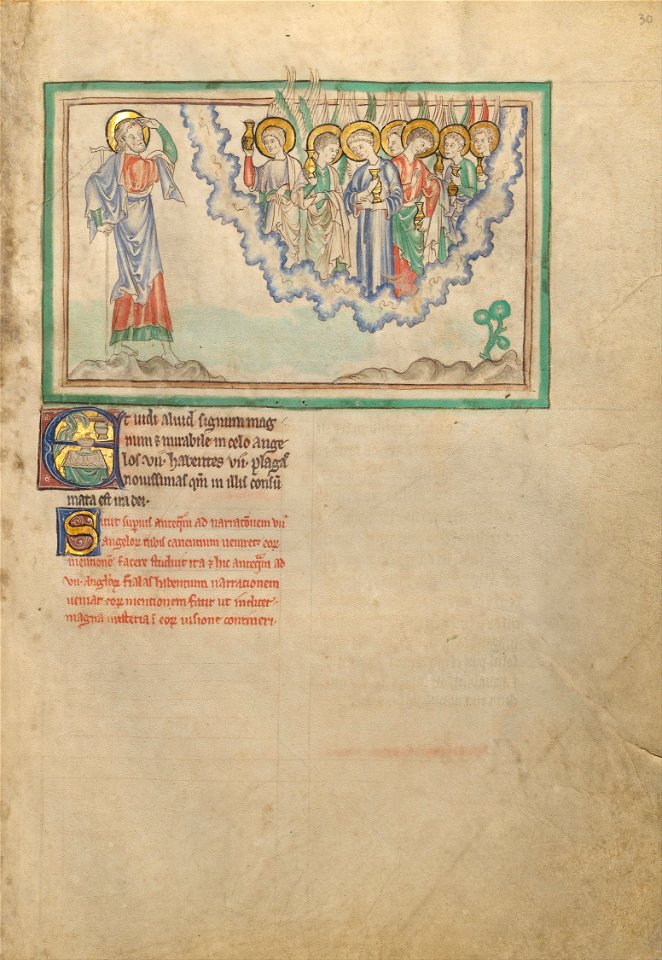 30
Et uidi aliud signum mag
num ⁊ mirabile in celo ange
los .vii. habentes .vii. plagas
nouissimas qm̄ in illis consū
mata est ira dei.
Sicut superius anteq̄m ad narrationem vii
angelor tubis canentium ueniret eor
mentionē facere studuit ita ⁊ hic anteq̄m ad
.vii. anglor̄ fialas habentium narrationem
ueniat eor mentionem facit ut indicet
magna misteria ī eor uisione contineri.